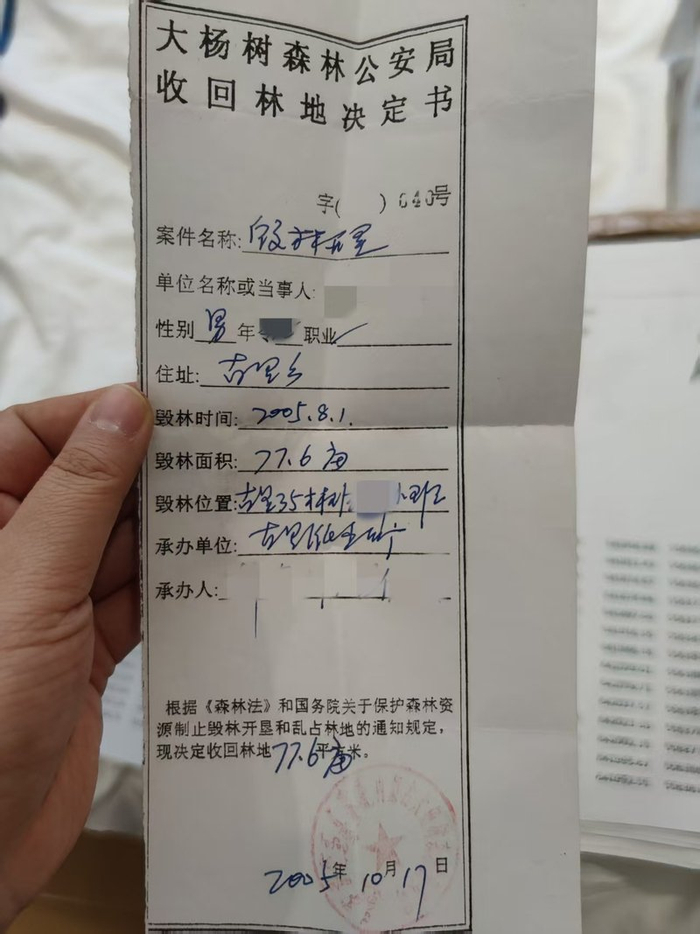 大杨树森林公安局
收回林地决定书
字(    )040号
案件名称: 毁林开垦
单位名称或当事人:
性别 男 年 职业
住址: 古里乡
毁林时间: 2005.8.1.
毁林面积: 77.6亩
毁林位置: 古里35林班 小班
承办单位: 古里派出所
承办人:
根据《森林法》和国务院关于保护森林资
源制止毁林开垦和乱占林地的通知规定,
现决定收回林地77.6亩平方米。
2005年10月17日